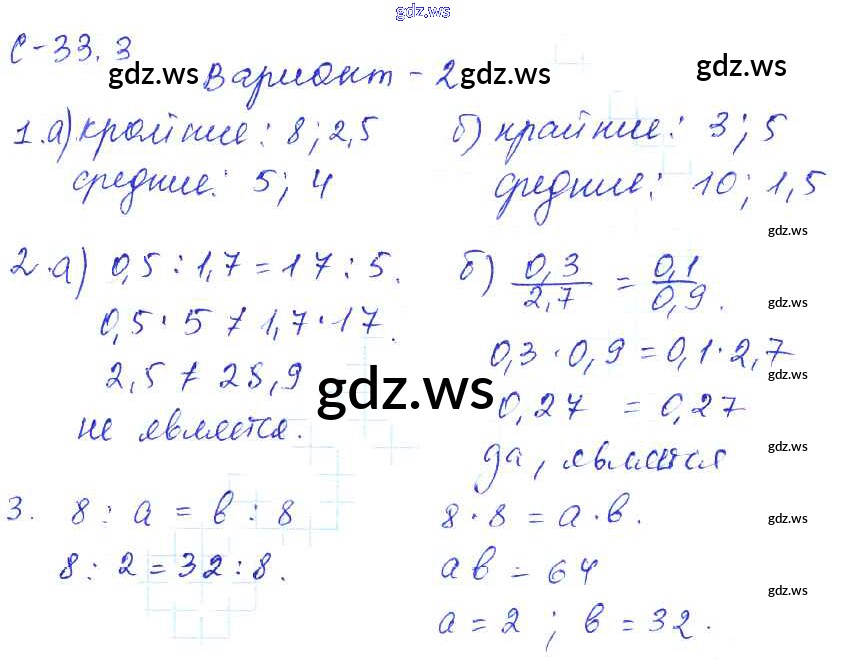 gdz.ws
С-33.3
gdz.ws Вариант - 2 gdz.ws gdz.ws
1.а) крайние: 8; 2,5
средние: 5; 4
б) крайние: 3; 5
средние: 10; 1,5
gdz.ws
2.а) 0,5 : 1,7 = 17 : 5.
0,5 · 5 ≠ 1,7 · 17.
2,5 ≠ 28,9
не является.
б) 0,3/2,7 = 0,1/0,9.
gdz.ws
0,3 · 0,9 = 0,1 · 2,7
gdz.ws
0,27 = 0,27
да, является
gdz.ws
gdz.ws
3. 8 : а = в : 8
8 : 2 = 32 : 8.
8 · 8 = а · в.
gdz.ws
ав = 64
gdz.ws
а = 2 ; в = 32.